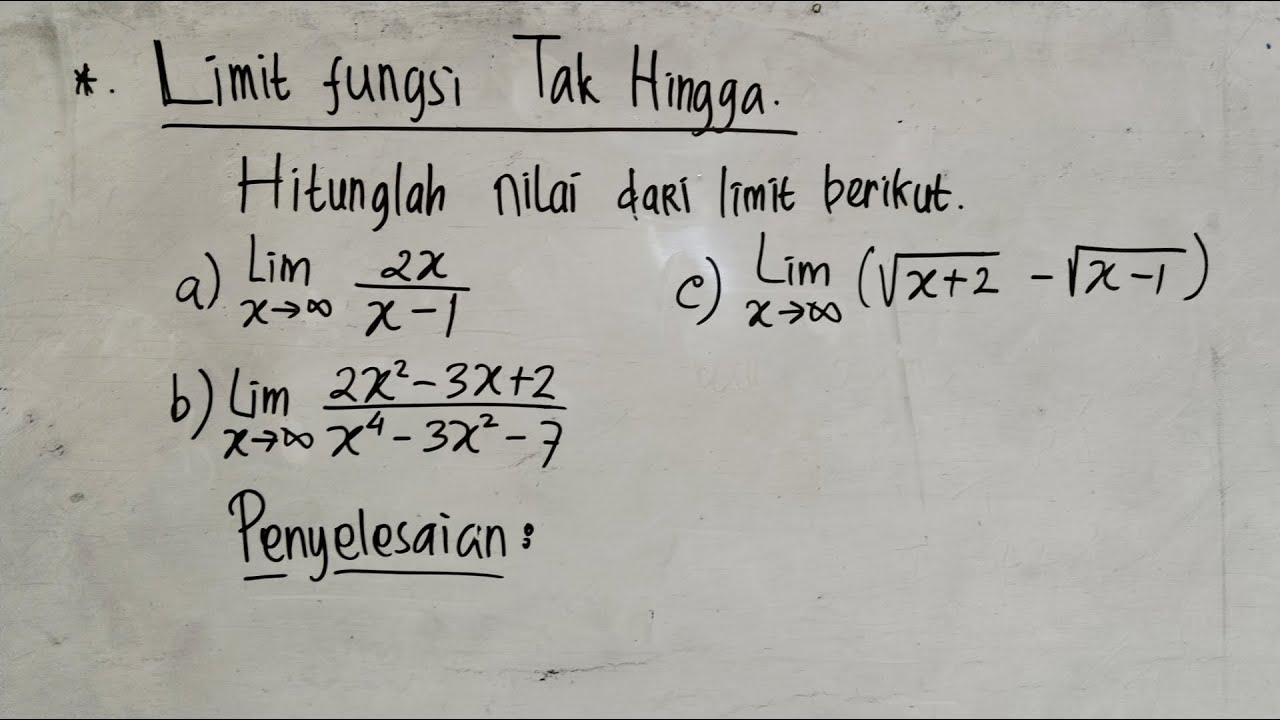 *. Limit fungsi Tak Hingga.
Hitunglah nilai dari limit berikut.
a) Lim x→∞ 2x / x-1
c) Lim x→∞ (√x+2 - √x-1)
b) Lim x→∞ 2x²-3x+2 / x⁴-3x²-7
Penyelesaian: